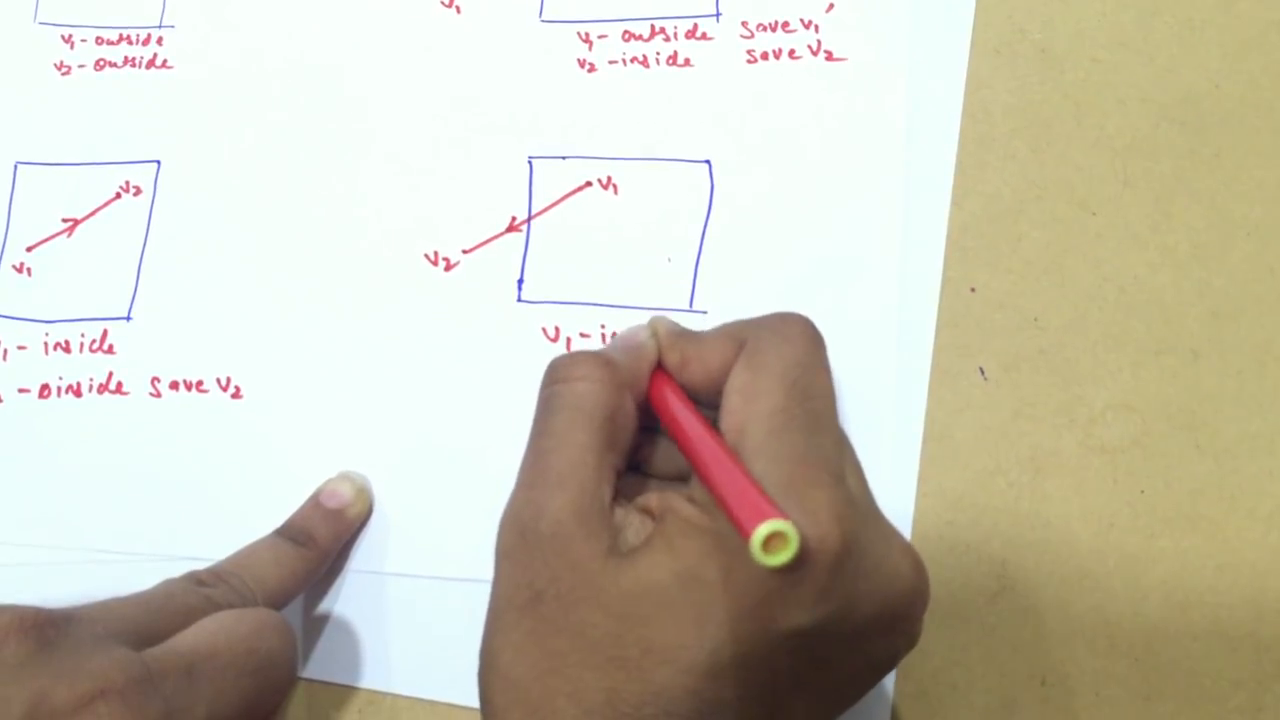 v1
v1 - outside
v2 - outside
v1 - outside save v1'
v2 - inside save v2
v2
v1
v1
v2
1 - inside
- oinside save v2
v1 - in